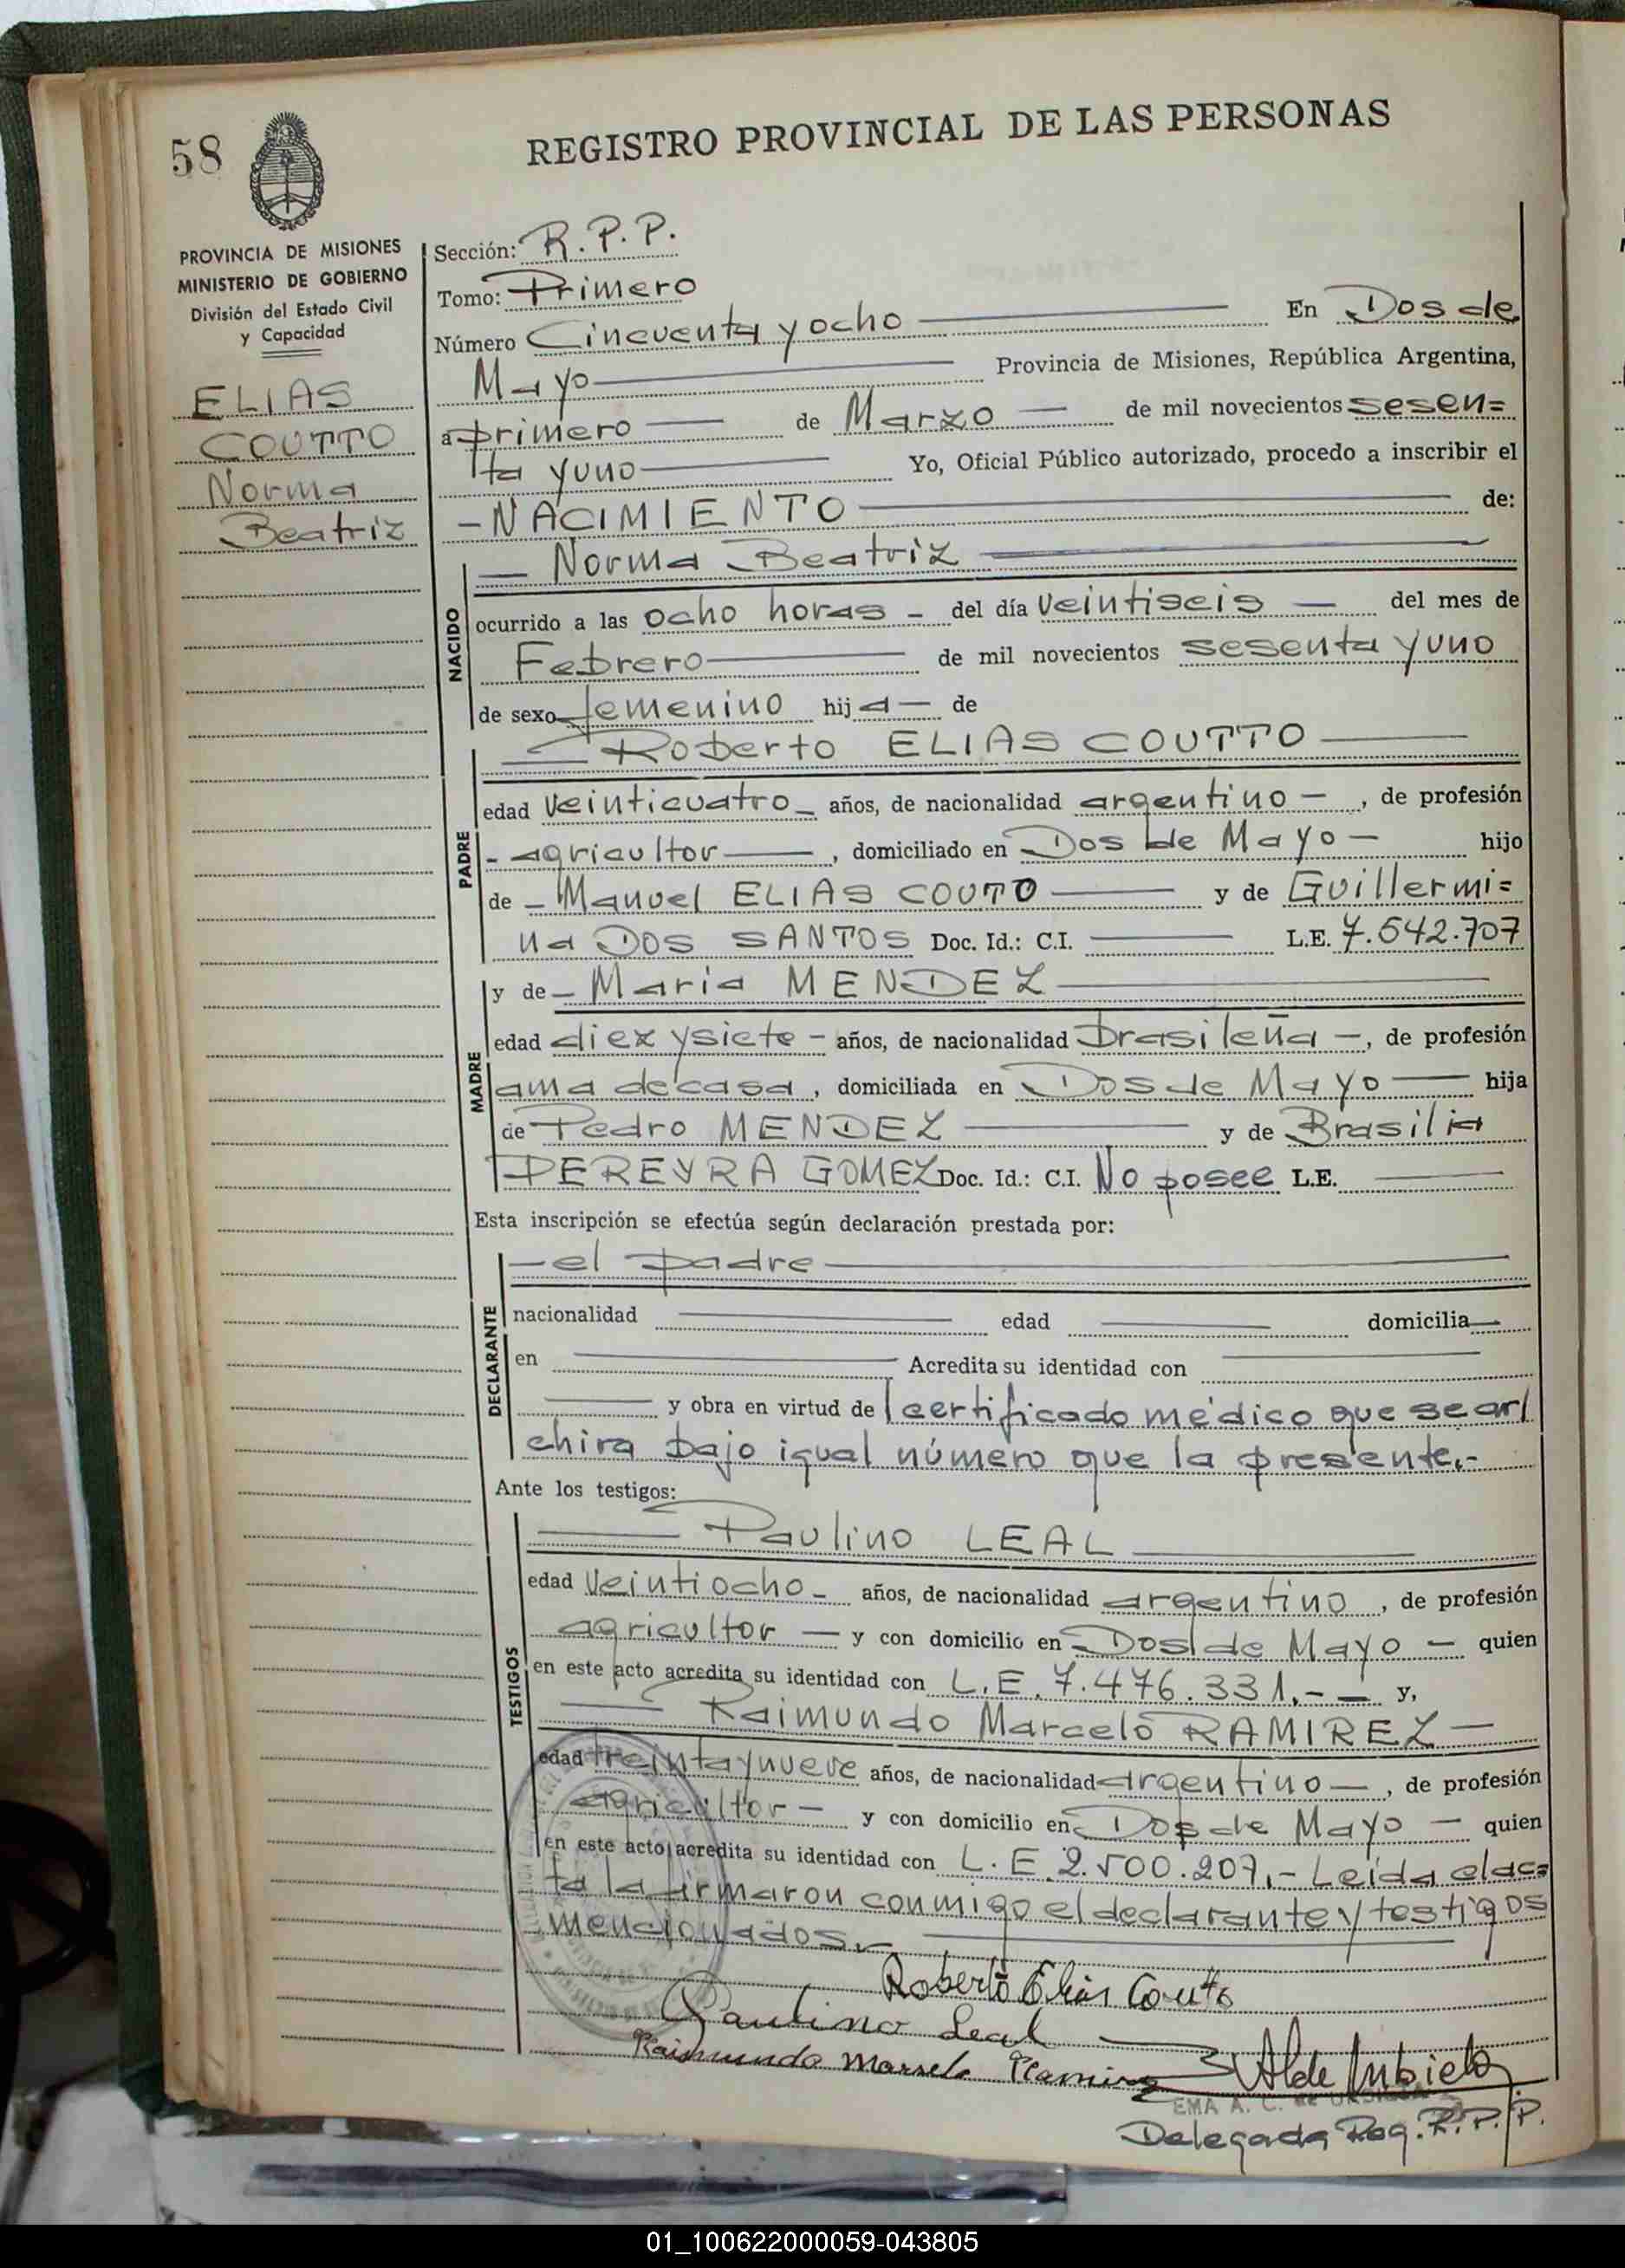 58
REGISTRO PROVINCIAL DE LAS PERSONAS
PROVINCIA DE MISIONES
MINISTERIO DE GOBIERNO
División del Estado Civil
y Capacidad
ELIAS
COUTTO
Norma
Beatriz
Sección: R.P.P.
Tomo: Primero
Número Cincuenta y ocho En Dos de
Mayo Provincia de Misiones, República Argentina,
a primero de Marzo de mil novecientos sesen=
ta y uno Yo, Oficial Público autorizado, procedo a inscribir el
-NACIMIENTO de:
Norma Beatriz
NACIDO
ocurrido a las ocho horas - del día veintiseis - del mes de
Febrero de mil novecientos sesenta y uno
de sexo femenino hija de
Roberto ELIAS COUTTO
PADRE
edad veinticuatro - años, de nacionalidad argentino -, de profesión
- agricultor, domiciliado en Dos de Mayo - hijo
de - Manuel ELIAS COUTO y de Guillermi=
na DOS SANTOS Doc. Id.: C.I. L.E. 7.542.707
y de - Maria MENDEZ
MADRE
edad diez y siete - años, de nacionalidad brasileña -, de profesión
ama de casa, domiciliada en Dos de Mayo hija
de Pedro MENDEZ y de Brasilia
PEREYRA GOMEZ Doc. Id.: C.I. No posee L.E.
Esta inscripción se efectúa según declaración prestada por:
- el padre
DECLARANTE
nacionalidad edad domicilia
en Acredita su identidad con
y obra en virtud de l certificado médico que se ar/
chiva bajo igual número que la presente.-
Ante los testigos:
Paulino LEAL
TESTIGOS
edad veintiocho - años, de nacionalidad argentino, de profesión
agricultor - y con domicilio en Dos de Mayo - quien
en este acto acredita su identidad con L.E. 7.476.331.- - y,
Raimundo Marcelo RAMIREZ
edad treinta y nueve años, de nacionalidad argentino -, de profesión
agricultor - y con domicilio en Dos de Mayo - quien
en este acto acredita su identidad con L.E 2.500.207.- Leída el ac=
ta la firmaron conmigo el declarante y testigos
mencionados.
Roberto Elias Couto
Paulino Leal
Raimundo Marselo Ramirez
EMA A. C. de
Delegada Reg. R.P.P.
01_100622000059-043805